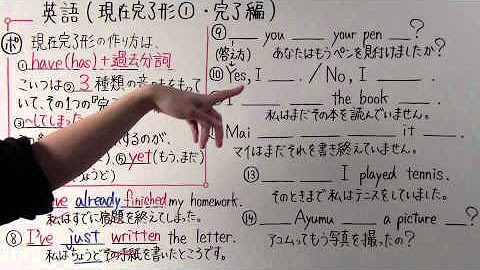 英語(現在完了形①・完了編)
ポ 現在完了形の作り方は、
①have(has)+過去分詞
こいつは② 3 種類の意味をもって
いて、その1つの『完
③〜してしまっ
するのが、
⑤yet(もう、まだ)
ょうど)
ve already finished my homework.
私はすでに宿題を終えてしまった。
⑧ I've just written the letter.
私はちょうどその手紙を書いたところです。
⑨ ___ you ___ your pen ___?
(答え方) あなたはもうペンを見付けましたか?
⑩ Yes, I ___. / No, I ___.
I ___ ___ the book ___.
私はまだその本を読んでいません。
Mai ___ ___ it ___.
マイはまだそれを書き終えていません。
⑬ ___ ___ I played tennis.
そのときまで私はテニスをしていました。
⑭ ___ Ayumu ___ a picture ___?
アユムってもう写真を撮ったの?